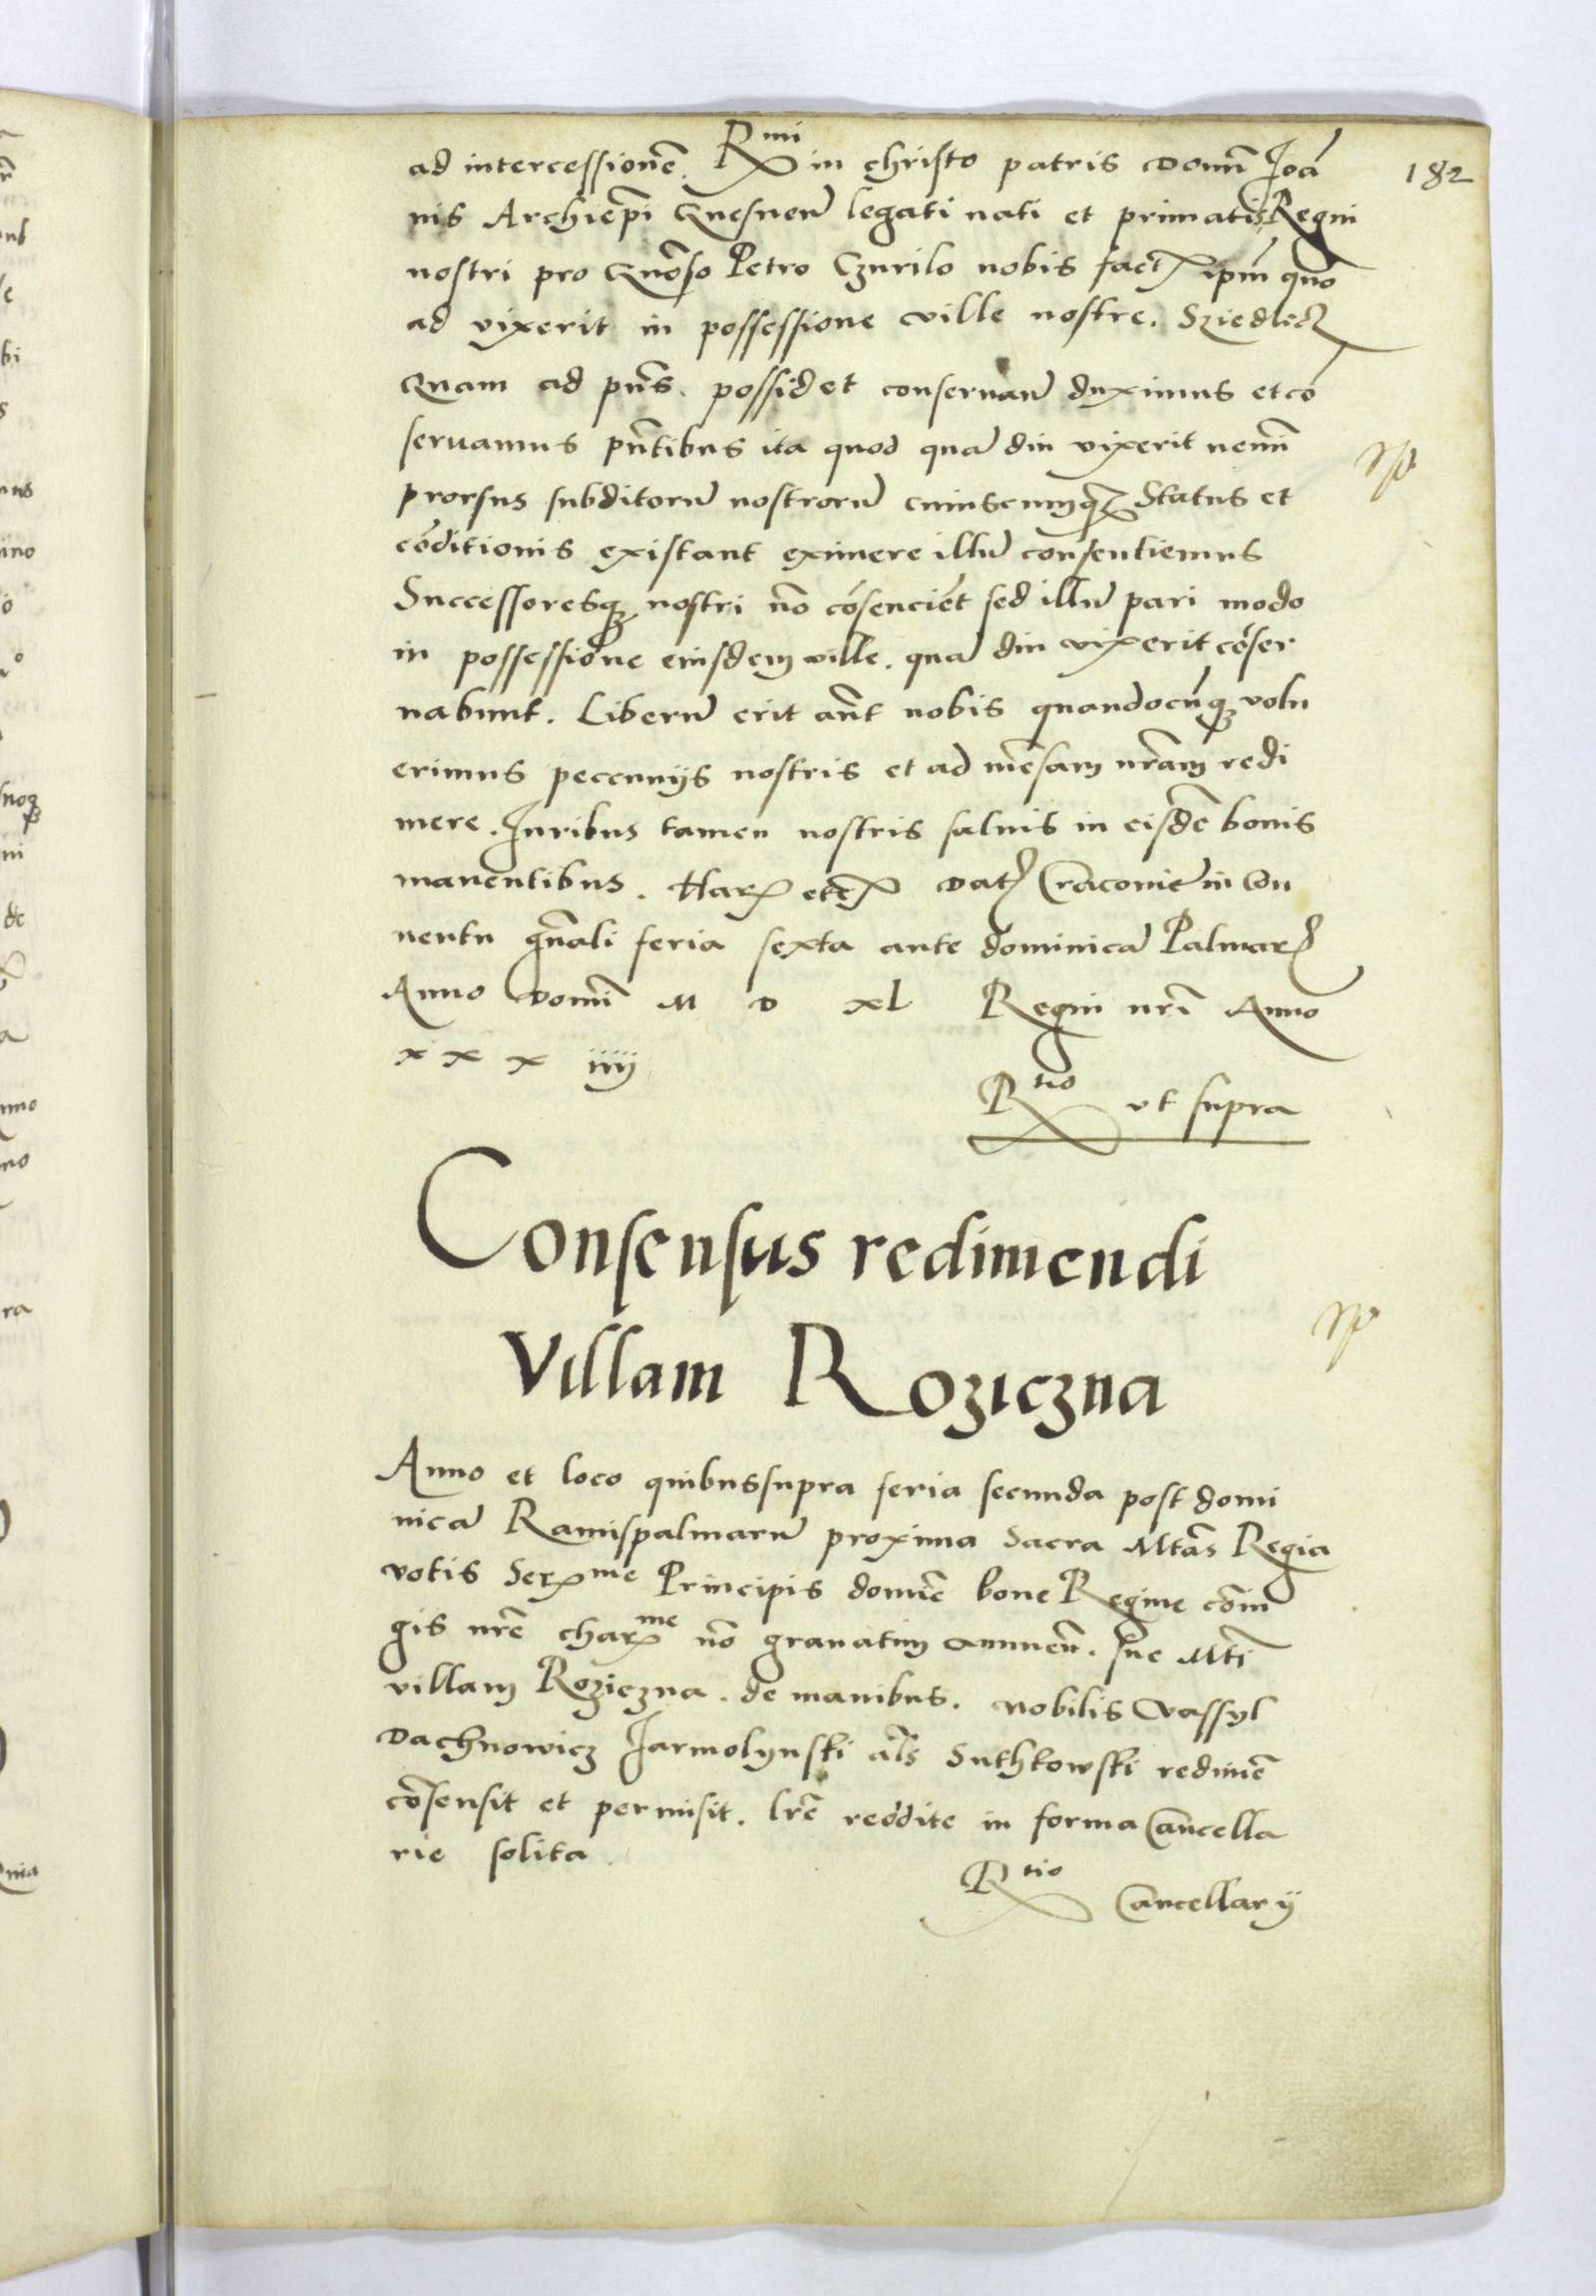 182
ad intercessionē. Rmi in christo patris domī Joā
nis Archiepi Gnesneñ legati nati et primatis Regni
nostri pro Gnōso Petro Czurilo nobis fact ipm̄ quo
ad vixerit in possessione ville nostre. Sziedlecz
Quam ad pns̄. possidet conseruand̄ duximus et cō
seruamus pn̄tibus ita quod quā diu vixerit nemī
prorsus subditorū nostrorū cuiuscunqz Status et
cōditionis existant eximere illū consentiemus
Successoresqz nostri nō cōsencient sed illū pari modo
in possessione eiusdem ville. quā diu vixerit cōser
uabunt. Liberū erit aūt nobis quandocūqz volu
erimus peccuniis nostris et ad mēsam nr̄am redi
mere. Juribus tamen nostris saluis in eisdē bonis
manentibus. Har etc Dat Cracouie in Con
uentu gn̄ali feria sexta ante dominicā Palmar
Anno Domī M D XL Regni nr̄i Anno
xxx iiij
Rtio vt supra
Consensus redimendi
Villam Roziczna
Anno et loco quibussupra feria secunda post domi
nicā Ramispalmarū proxima Sacra Mtas̄ Regia
votis Ser me Principis domīe bone Regine cōiu
gis nr̄e char me nō grauatim annueñ. Sue Mti
villam Roziczna. de manibus. nobilis Vassyl
Dachnowicz Jarmolynski als̄ Suthkowski redimē
cōsensit et permisit. lr̄e reddite in forma Cancella
rie solita.
Rtio Cancellarij